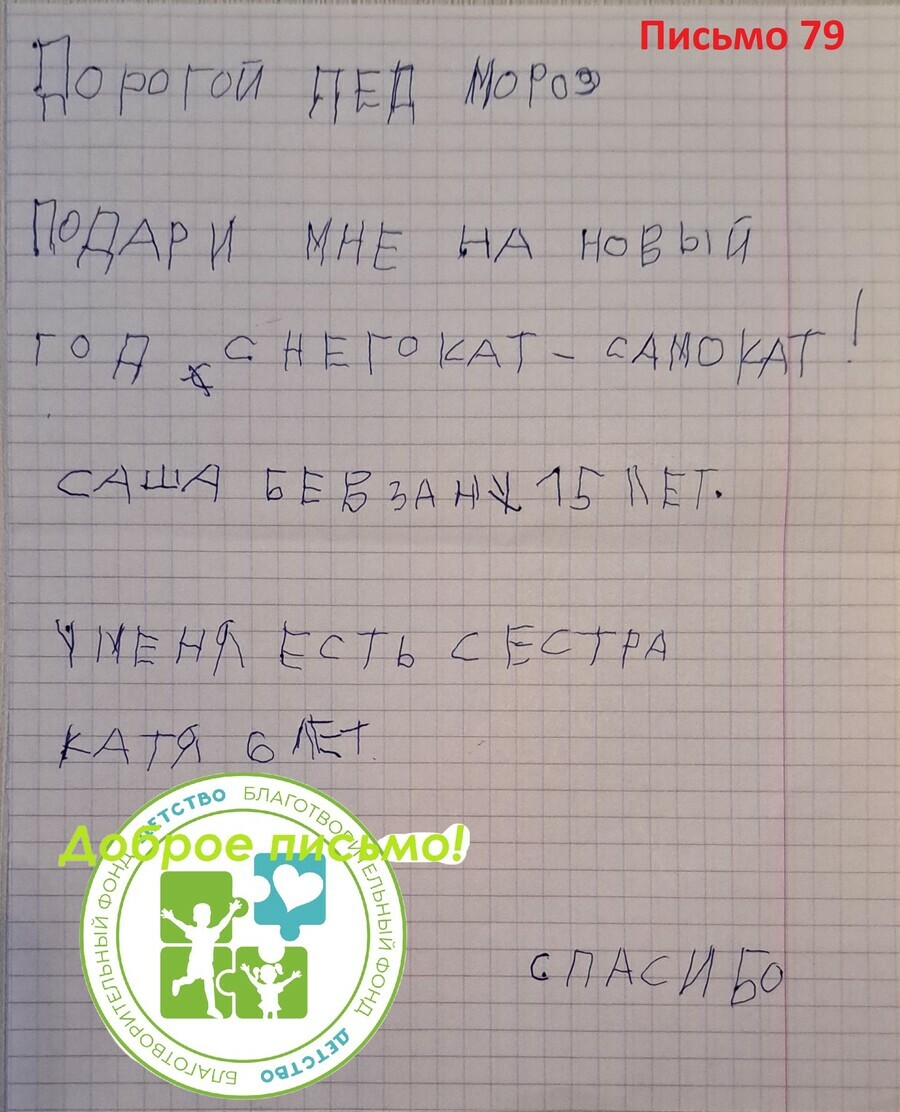 Письмо 79
ДОРОГОЙ ПЕД МОРОЗ
ПОДАРИ МНЕ НА НОВЫЙ
ГОД СНЕГОКАТ - САМОКАТ!
САША БЕВЗАНУК 15 ЛЕТ.
У МЕНЯ ЕСТЬ СЕСТРА
КАТЯ 6 ЛЕТ
Доброе письмо!
ДЕТСТВО БЛАГОТВОРИТЕЛЬНЫЙ ФОНД
ДЕТСТВО БЛАГОТВОРИТЕЛЬНЫЙ ФОНД
СПАСИБО